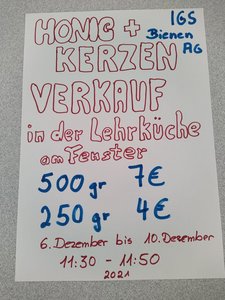 HONIG + IGS
KERZEN Bienen AG
VERKAUF
in der Lehrküche
am Fenster
500gr 7€
250gr 4€
6. Dezember bis 10. Dezember
11:30 - 11:50
2021